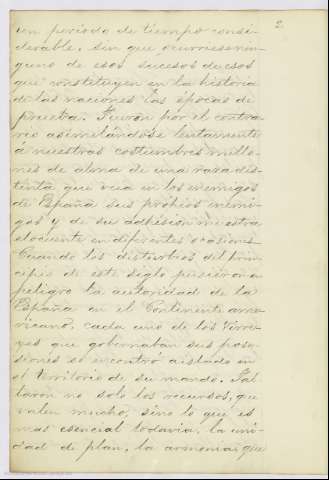 2.
un periodo de tiempo consi-
derable, sin que ocurriesen nin-
guno de esos sucesos de esos
que constituyen en la historia
de las naciones las épocas de
prueba. Fueron por el contra-
rio asimilándose lentamente
á nuestras costumbres millo-
nes de alma de una raza dis-
tinta, que veia en los enemigos
de España sus propios enemi-
gos y de su adhesion muestra
elocuente en diferentes ocasiones
Cuando los disturbios del prin-
cipio de este siglo pusieron a
peligro la autoridad de la
España en el Continente ame-
ricano, cada uno de los Virre-
yes que gobernaban sus pose-
siones se encontró aislado en
el territorio de su mando. Fal-
taron no solo los recursos, que
valen mucho, sino lo que es
mas esencial todavia, la uni-
dad de plan, la armonia que